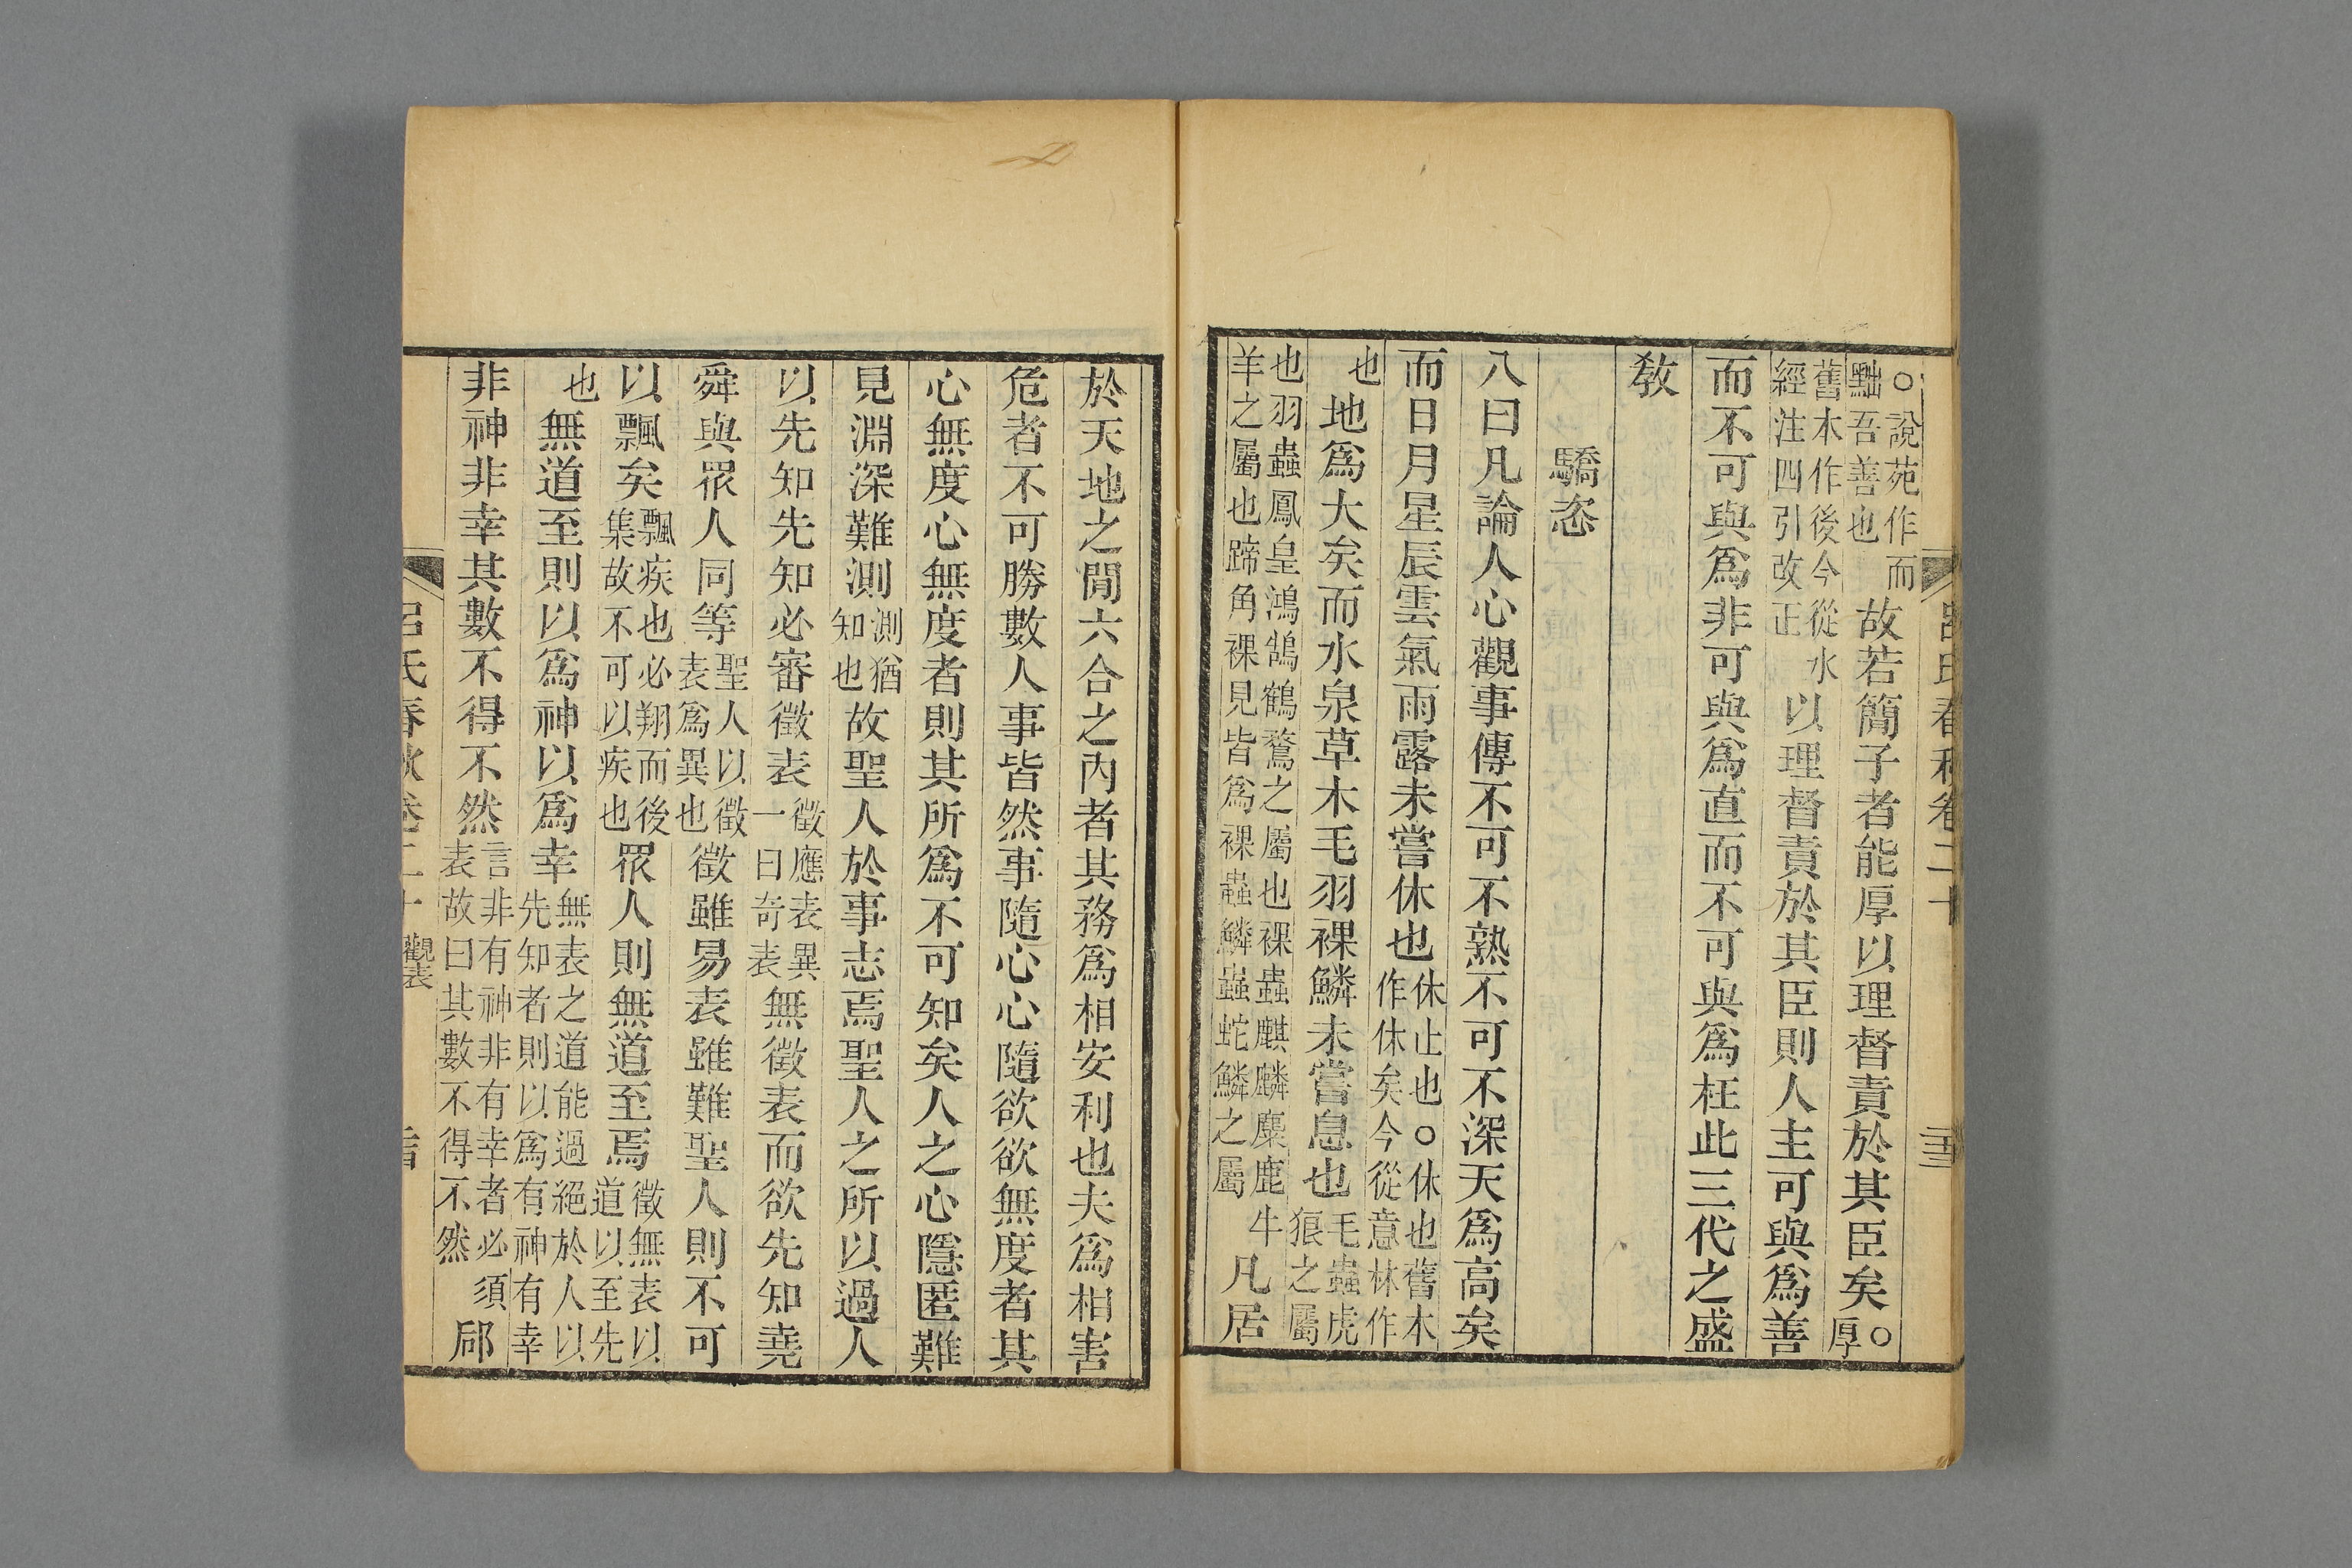 呂氏春秋卷二十
○說苑作而黜吾善也故若簡子者能厚以理督責於其臣矣○厚
舊本作後今從水經注四引改正以理督責於其臣則人主可與爲善
而不可與爲非可與爲直而不可與爲枉此三代之盛
敎
驕恣
八曰凡論人心觀事傳不可不熟不可不深天爲高矣
而日月星辰雲氣雨露未嘗休也休止也○休也舊本作休矣今從意林作
也地爲大矣而水泉草木毛羽裸鱗未嘗息也毛蟲虎狼之屬
也羽蟲鳳皇鴻鵠鶴鶩之屬也裸蟲麒麟麋鹿牛羊之屬也蹄角裸見皆爲裸蟲鱗蟲蛇鱗之屬凡居
於天地之閒六合之內者其務爲相安利也夫爲相害
危者不可勝數人事皆然事隨心心隨欲欲無度者其
心無度心無度者則其所爲不可知矣人之心隱匿難
見淵深難測測猶知也故聖人於事志焉聖人之所以過人
以先知先知必審徵表徵應表異一曰奇表無徵表而欲先知堯
舜與眾人同等聖人以徵表爲異也徵雖易表雖難聖人則不可
以飄矣飄疾也必翔而後集故不可以疾也眾人則無道至焉徵無表以道以至先
也無道至則以爲神以爲幸無表之道能過絕於人以先知者則以爲有神有幸
非神非幸其數不得不然言非有神非有幸者必須表故曰其數不得不然郈
呂氏春秋卷二十 觀表